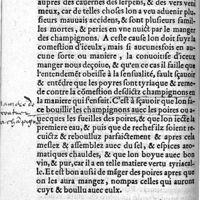 aupres des cauernes des serpens, & des vers veni
meux, car de telles choses lon a veu aduenir plu-
sieurs mauuais accidens, & sont plusieurs famil-
les mortes, & peries en vne nuict par le manger
des champignons. A ceste cause lon doit fuyr la
comestion d'iceulx, mais si aucunesfois en au-
cune sorte ou maniere, la conuoitise d'iceux
manger nous deçoit, & qu'en ce cas il faille que
l'entendemēt obeisse à la sensualité, fault sçauoir
& entēdre que les poyres sont tyriaque & reme-
de contre la comestion desdictz champignons en
la maniere qui s'ensuit. C'est à sçauoir que lon fa-
ce bouillir les champignons auec les poires ou a-
uecques les fueilles des poires, & que lon iecte la
premiere eau, & puis que de rechef ilz soient
recuictz & rebouluz parfaictement & apres cela
meslez & assemblez auec du sel, & espices aro-
matiques chauldes, & que lon boyue auec bon
vin, & pur, car il a en telle matiere vertu tyriaca-
le. Et est bon aussi de māger des poires apres que
on les aura manger, nompas celles qui auront
cuyt & boullu auec eulx.